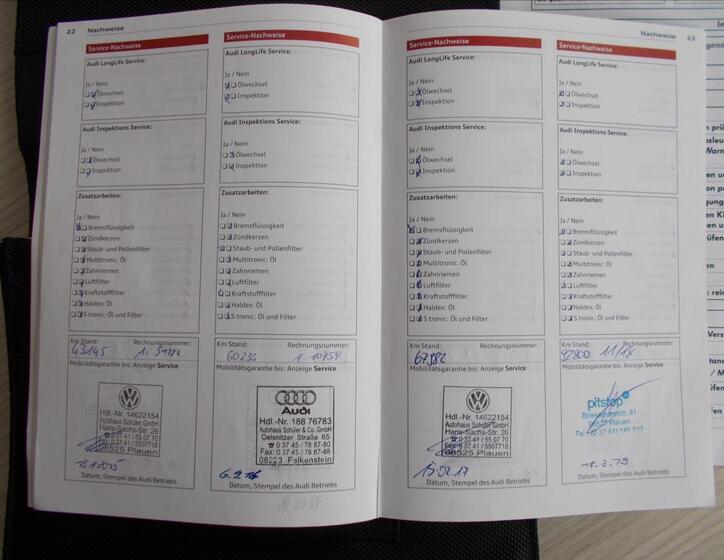 22 Nachweise
Service-Nachweise
Audi LongLife Service:
Ja / Nein
Ölwechsel
Inspektion
Audi Inspektions Service:
Ölwechsel
Inspektion
Zusatzarbeiten:
Ja / Nein
Bremsflüssigkeit
Zündkerzen
Staub- und Pollenfilter
Multitronic: Öl
Zahnriemen
Luftfilter
Kraftstofffilter
Haldex: Öl
S tronic: Öl und Filter
Km Stand: Rechnungsnummer:
43145
Mobilitätsgarantie bis: Anzeige Service
Hdl.-Nr. 14622154
Autohaus Schüler GmbH
Hans-Sachs-Str. 26
☎ 0 37 41 / 55 07 70
08525 Plauen
Service-Nachweise
Audi LongLife Service:
Ja / Nein
Ölwechsel
Inspektion
Audi Inspektions Service:
Ja / Nein
Ölwechsel
Inspektion
Zusatzarbeiten:
Ja / Nein
Bremsflüssigkeit
Zündkerzen
Staub- und Pollenfilter
Multitronic: Öl
Zahnriemen
Luftfilter
Kraftstofffilter
Haldex: Öl
S tronic: Öl und Filter
Km Stand: Rechnungsnummer:
60233
Mobilitätsgarantie bis: Anzeige Service
Audi
Hdl.-Nr. 188 76783
Autohaus Schüler & Co. GmbH
Oelsnitzer Straße 65
☎ 0 37 45 / 78 87-80
Fax: 0 37 45 / 78 87-88
08223 Falkenstein
Datum, Stempel des Audi Betriebs
Nachweise 23
Service-Nachweise
Audi LongLife Service:
Ja / Nein
Ölwechsel
Inspektion
Audi Inspektions Service:
Ja / Nein
Ölwechsel
Inspektion
Zusatzarbeiten:
Ja / Nein
Bremsflüssigkeit
Zündkerzen
Staub- und Pollenfilter
Multitronic: Öl
Zahnriemen
Luftfilter
Kraftstofffilter
Haldex: Öl
S tronic: Öl und Filter
Km Stand: Rechnungsnummer:
67982
Mobilitätsgarantie bis: Anzeige Service
Hdl.-Nr. 14622154
Autohaus Schüler GmbH
Hans-Sachs-Str. 26
☎ 0 37 41 / 55 07 70
08525 Plauen
15.02.17
Datum, Stempel des Audi Betriebs
Service-Nachweise
Audi LongLife Service:
Ja / Nein
Ölwechsel
Inspektion
Audi Inspektions Service:
Ja / Nein
Ölwechsel
Inspektion
Zusatzarbeiten:
Ja / Nein
Bremsflüssigkeit
Zündkerzen
Staub- und Pollenfilter
Multitronic: Öl
Zahnriemen
Luftfilter
Kraftstofffilter
Haldex: Öl
S tronic: Öl und Filter
Km Stand: Rechnungsnummer:
92800
Mobilitätsgarantie bis: Anzeige Service
pitstop
Plauen
Datum, Stempel des Audi Betriebs